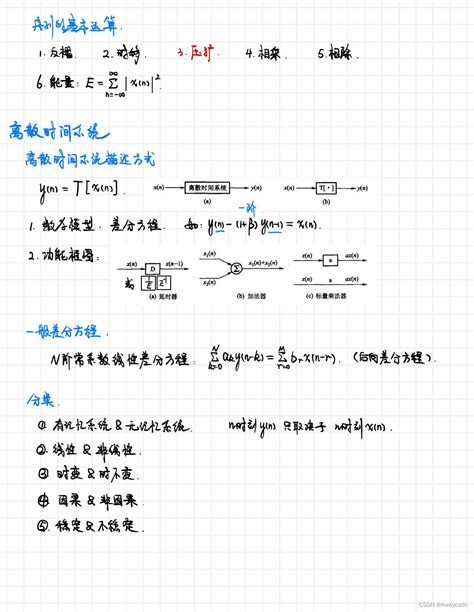 序列的基本运算.
1. 反褶. 2. 时移. 3. 压扩. 4. 相乘. 5. 相除.
6. 能量: E = Σ_{n=-∞}^{∞} |x(n)|².
离散时间系统
离散时间系统描述方式
y(n) = T[x(n)]. x(n) 离散时间系统 y(n) x(n) T[·] y(n)
(a) (b)
一阶
1. 数学模型: 差分方程. 如: y(n) - (1+β) y(n-1) = x(n).
2. 功能框图: x(n) D x(n-1) x₁(n) x₂(n) Σ x₁(n)+x₂(n) x(n) a ax(n)
或 1/E z⁻¹ x(n) a ax(n)
(a) 延时器 (b) 加法器 (c) 标量乘法器
一般差分方程.
N阶常系数线性差分方程: Σ_{k=0}^{N} aₖy(n-k) = Σ_{r=0}^{M} bᵣx(n-r). (后向差分方程).
分类.
① 有记忆系统 & 无记忆系统. n时刻 y(n) 只取决于 n时刻 x(n).
② 线性 & 非线性.
③ 时变 & 时不变.
④ 因果 & 非因果.
⑤ 稳定 & 不稳定.